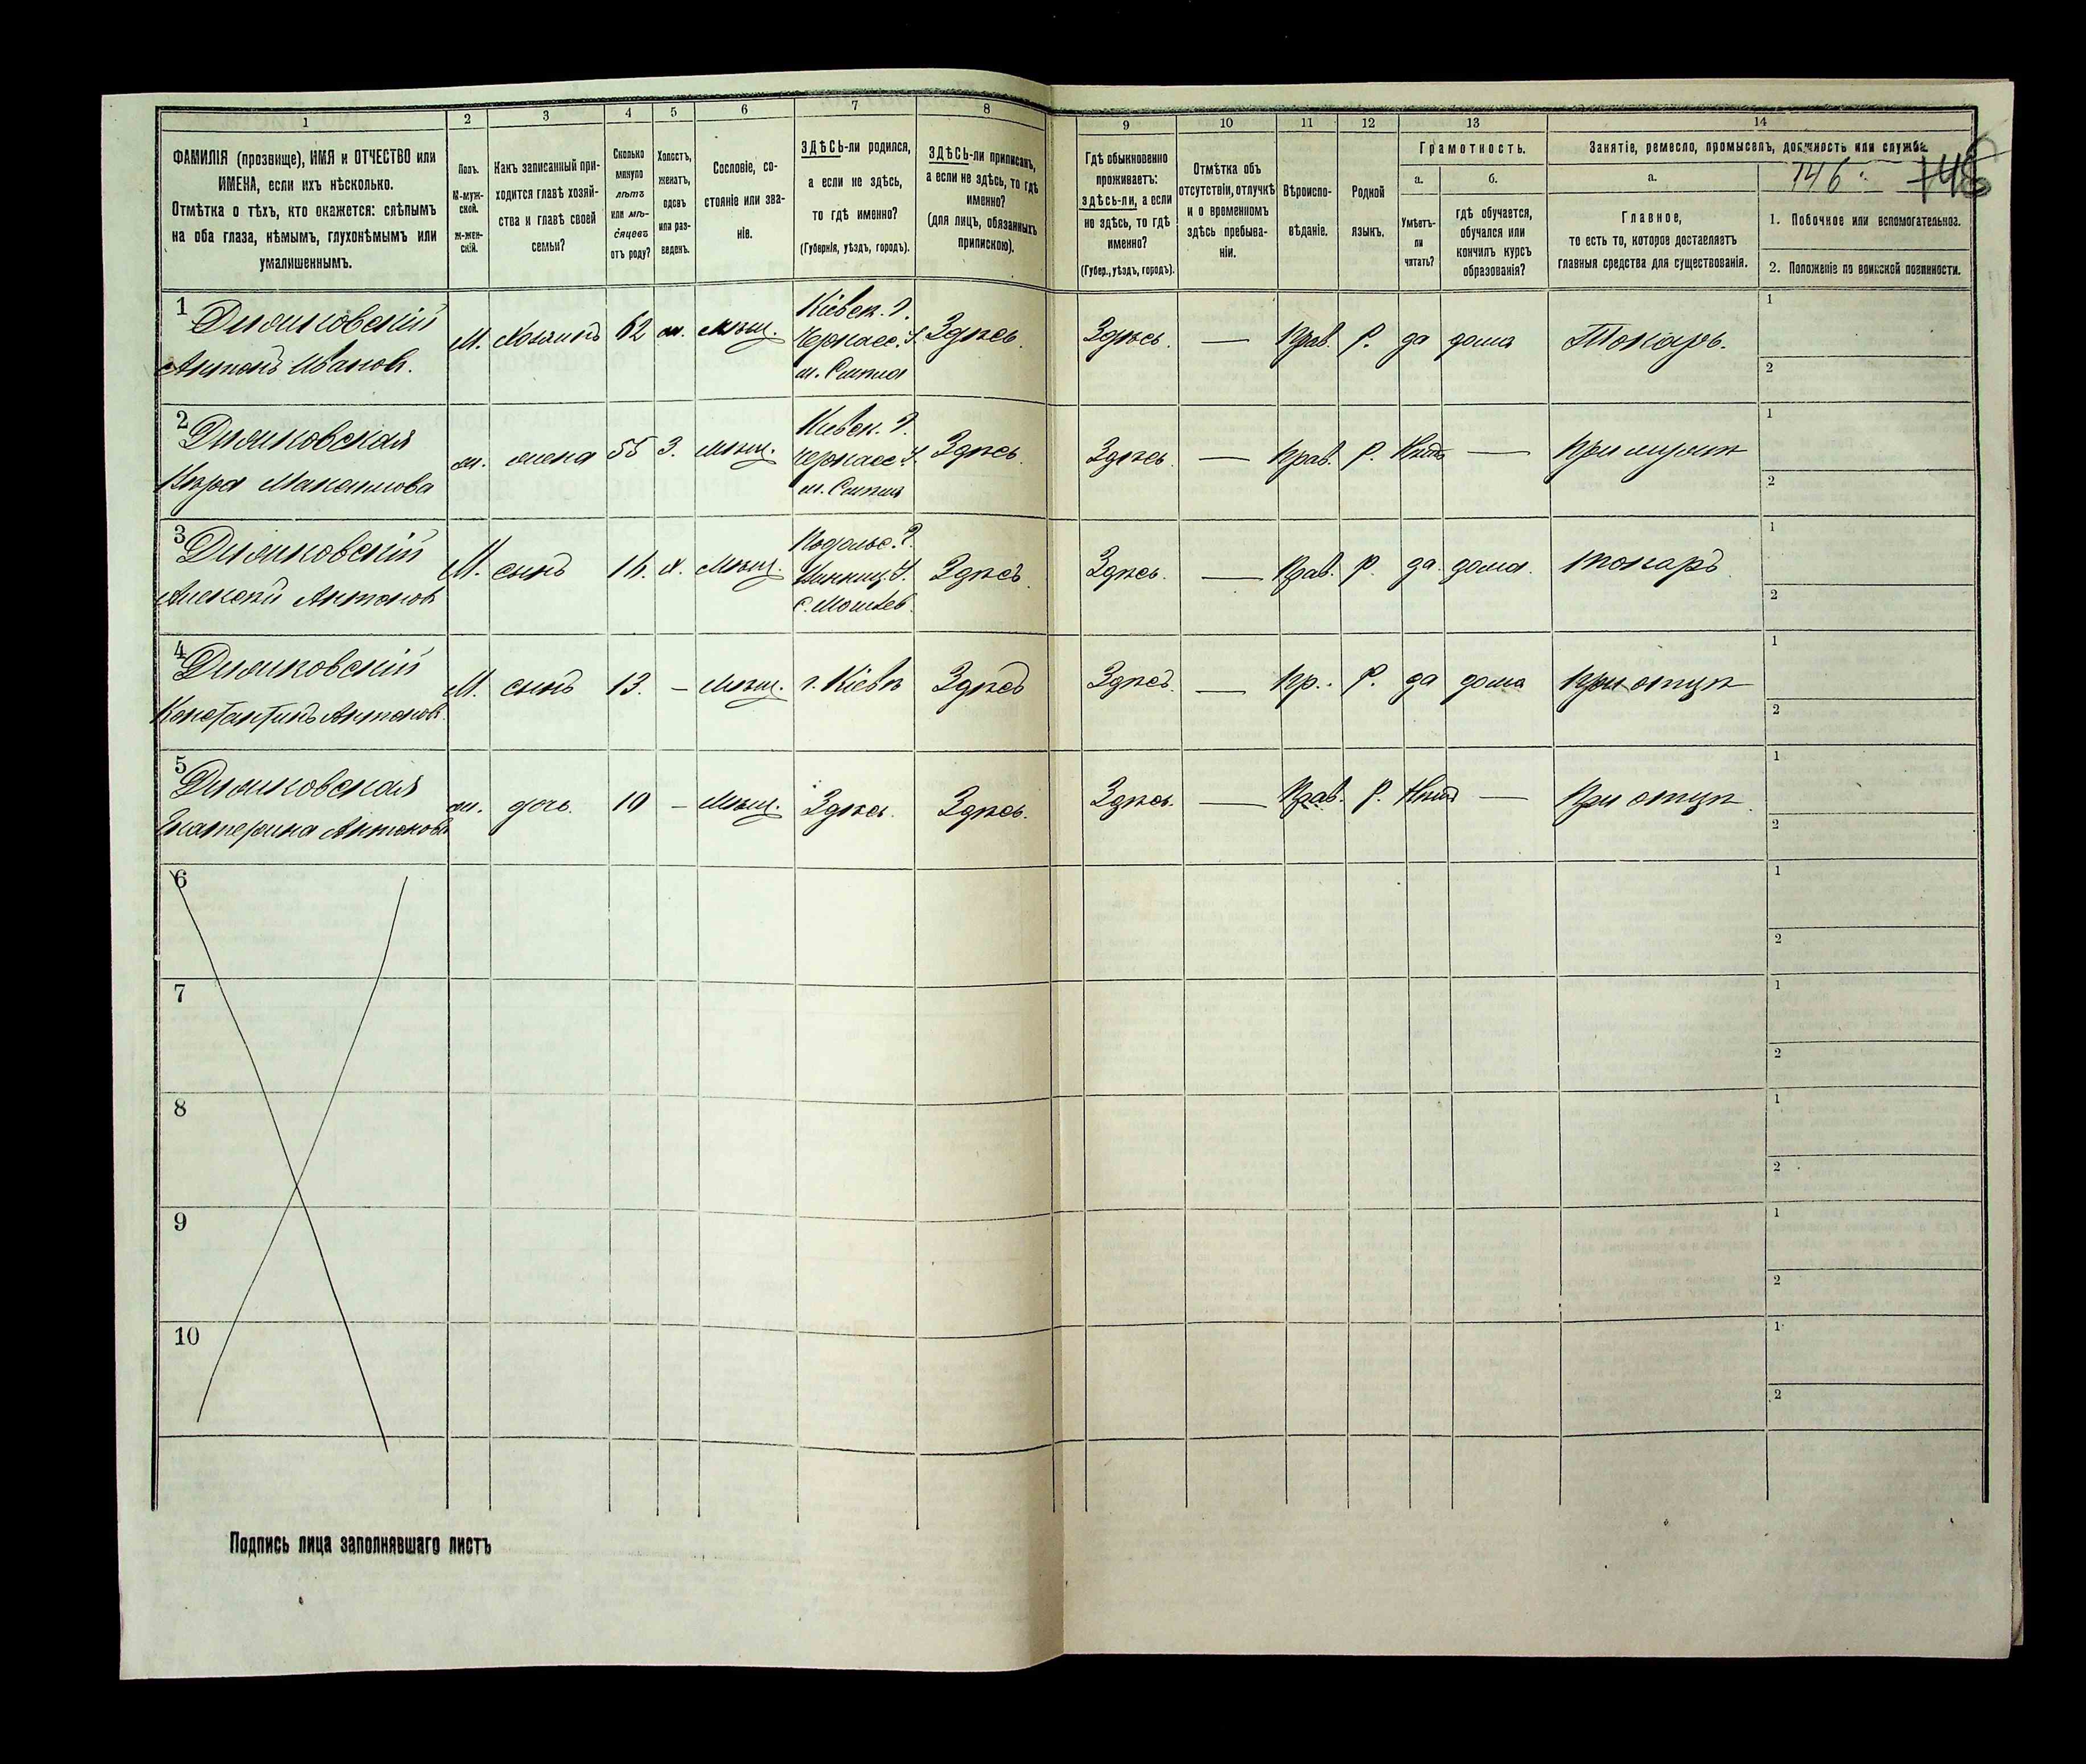 1 2 3 4 5 6 7 8 9 10 11 12 13 14
ФАМИЛІЯ (прозвище), ИМЯ и ОТЧЕСТВО или
ИМЕНА, если ихъ нѣсколько.
Отмѣтка о тѣхъ, кто окажется: слѣпымъ
на оба глаза, нѣмымъ, глухонѣмымъ или
умалишеннымъ.
Полъ.
М-муж-
ской.
Ж-жен-
скій.
Какъ записанный при-
ходится главѣ хозяй-
ства и главѣ своей
семьи?
Сколько
минуло
лѣтъ
или мѣ-
сяцевъ
отъ роду?
Холостъ,
женатъ,
вдовъ
или раз-
веденъ.
Сословіе, со-
стояніе или зва-
ніе.
ЗДѢСЬ-ли родился,
а если не здѣсь,
то гдѣ именно?
(Губернія, уѣздъ, городъ).
ЗДѢСЬ-ли приписанъ,
а если не здѣсь, то гдѣ
именно?
(для лицъ, обязанныхъ
припискою).
Гдѣ обыкновенно
проживаетъ:
здѣсь-ли, а если
не здѣсь, то гдѣ
именно?
(Губер., уѣздъ, городъ).
Отмѣтка объ
отсутствіи, отлучкѣ
и о временномъ
здѣсь пребыва-
ніи.
Вѣроиспо-
вѣданіе.
Родной
языкъ.
Грамотность.
а.
Умѣетъ-
ли
читать?
б.
гдѣ обучается,
обучался или
кончилъ курсъ
образованія?
Занятіе, ремесло, промыселъ, должность или служба.
а.
Главное,
то есть то, которое доставляетъ
главныя средства для существованія.
146
1. Побочное или вспомогательное.
2. Положеніе по воинской повинности.
1
Антонъ Иванов.
М. Хозяинъ 62 ж. мѣщ.
Кіевск. г.
Черкасс. у.
Здѣсь. Здѣсь. — Прав. Р. да дома Токарь.
1
2
2
ж. жена 55 З. мѣщ.
Киевск. г.
Черкасс. у.
Здѣсь. Здѣсь — Прав. Р. Нѣтъ — При мужѣ
1
2
3
Алексѣй Антонов
М. сынъ 16. х. Мѣщ.
Подольс. г.
Винниц. у.
Здѣсь. Здѣсь. — Прав. Р. да дома. токарь
1
2
4
Константинъ Антонов.
М. сынъ 13. — Мѣщ. г. Кіевѣ Здѣсь Здѣсь. — Пр. Р. да дома при отцѣ
1
2
5
Екатерина Антонова
ж. дочь. 10 — Мѣщ. Здѣсь. Здѣсь. Здѣсь. — Прав. Р. Нѣтъ — При отцѣ
1
2
6
1
2
7
1
2
8
1
2
9
1
2
10
1
2
Подпись лица заполнявшаго листъ